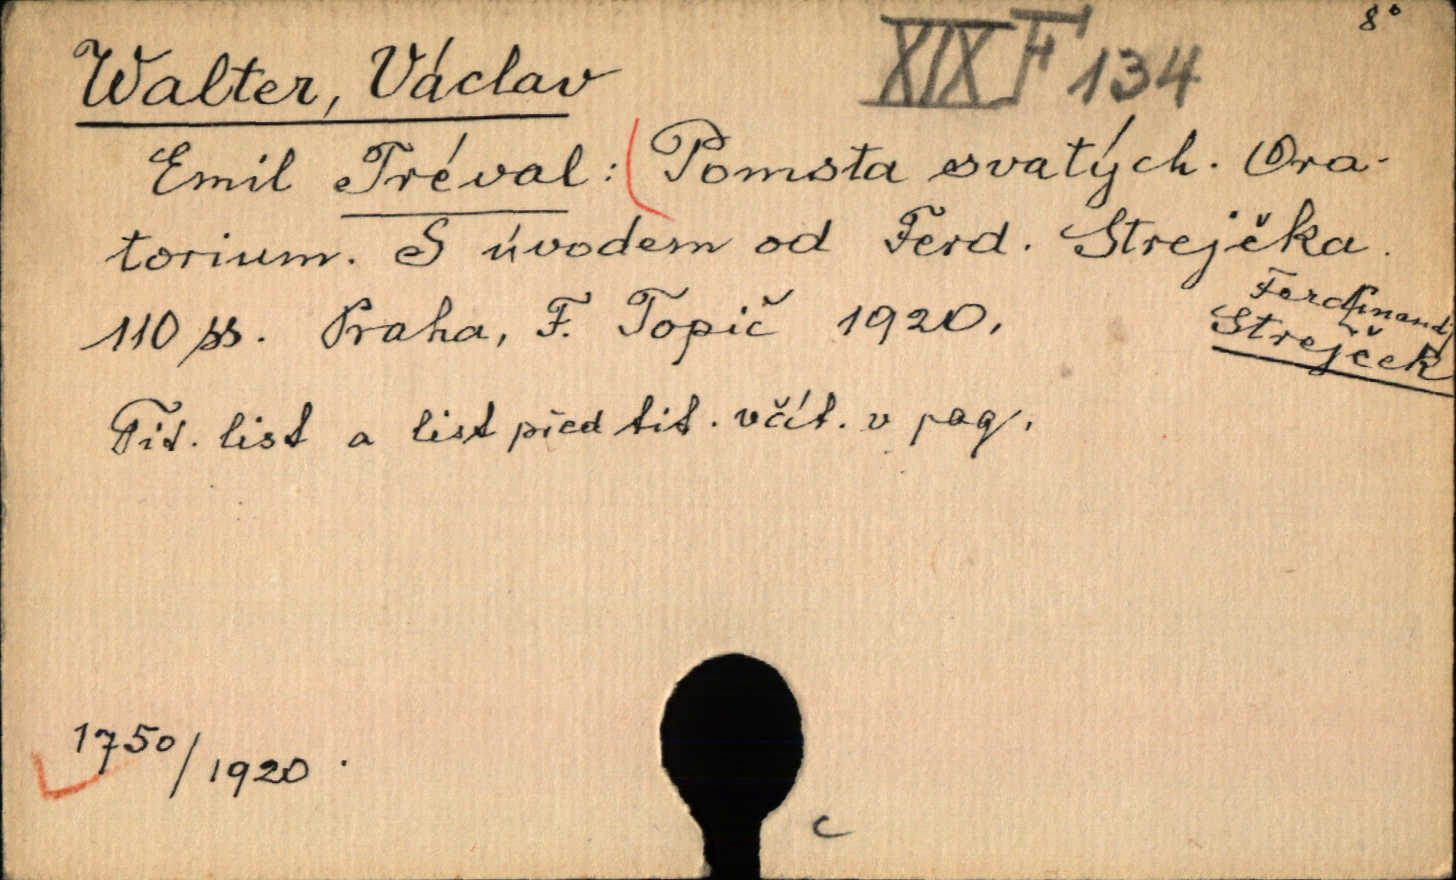 8°
XIX F 134
Walter, Václav
Emil Tréval: Pomsta svatých. Ora-
torium. S úvodem od Ferd. Strejčka.
110 ss. Praha, F. Topič 1920.
Ferdinand
Strejček
Tit. list a list před tit. včít. v pag.
1750/1920.
c